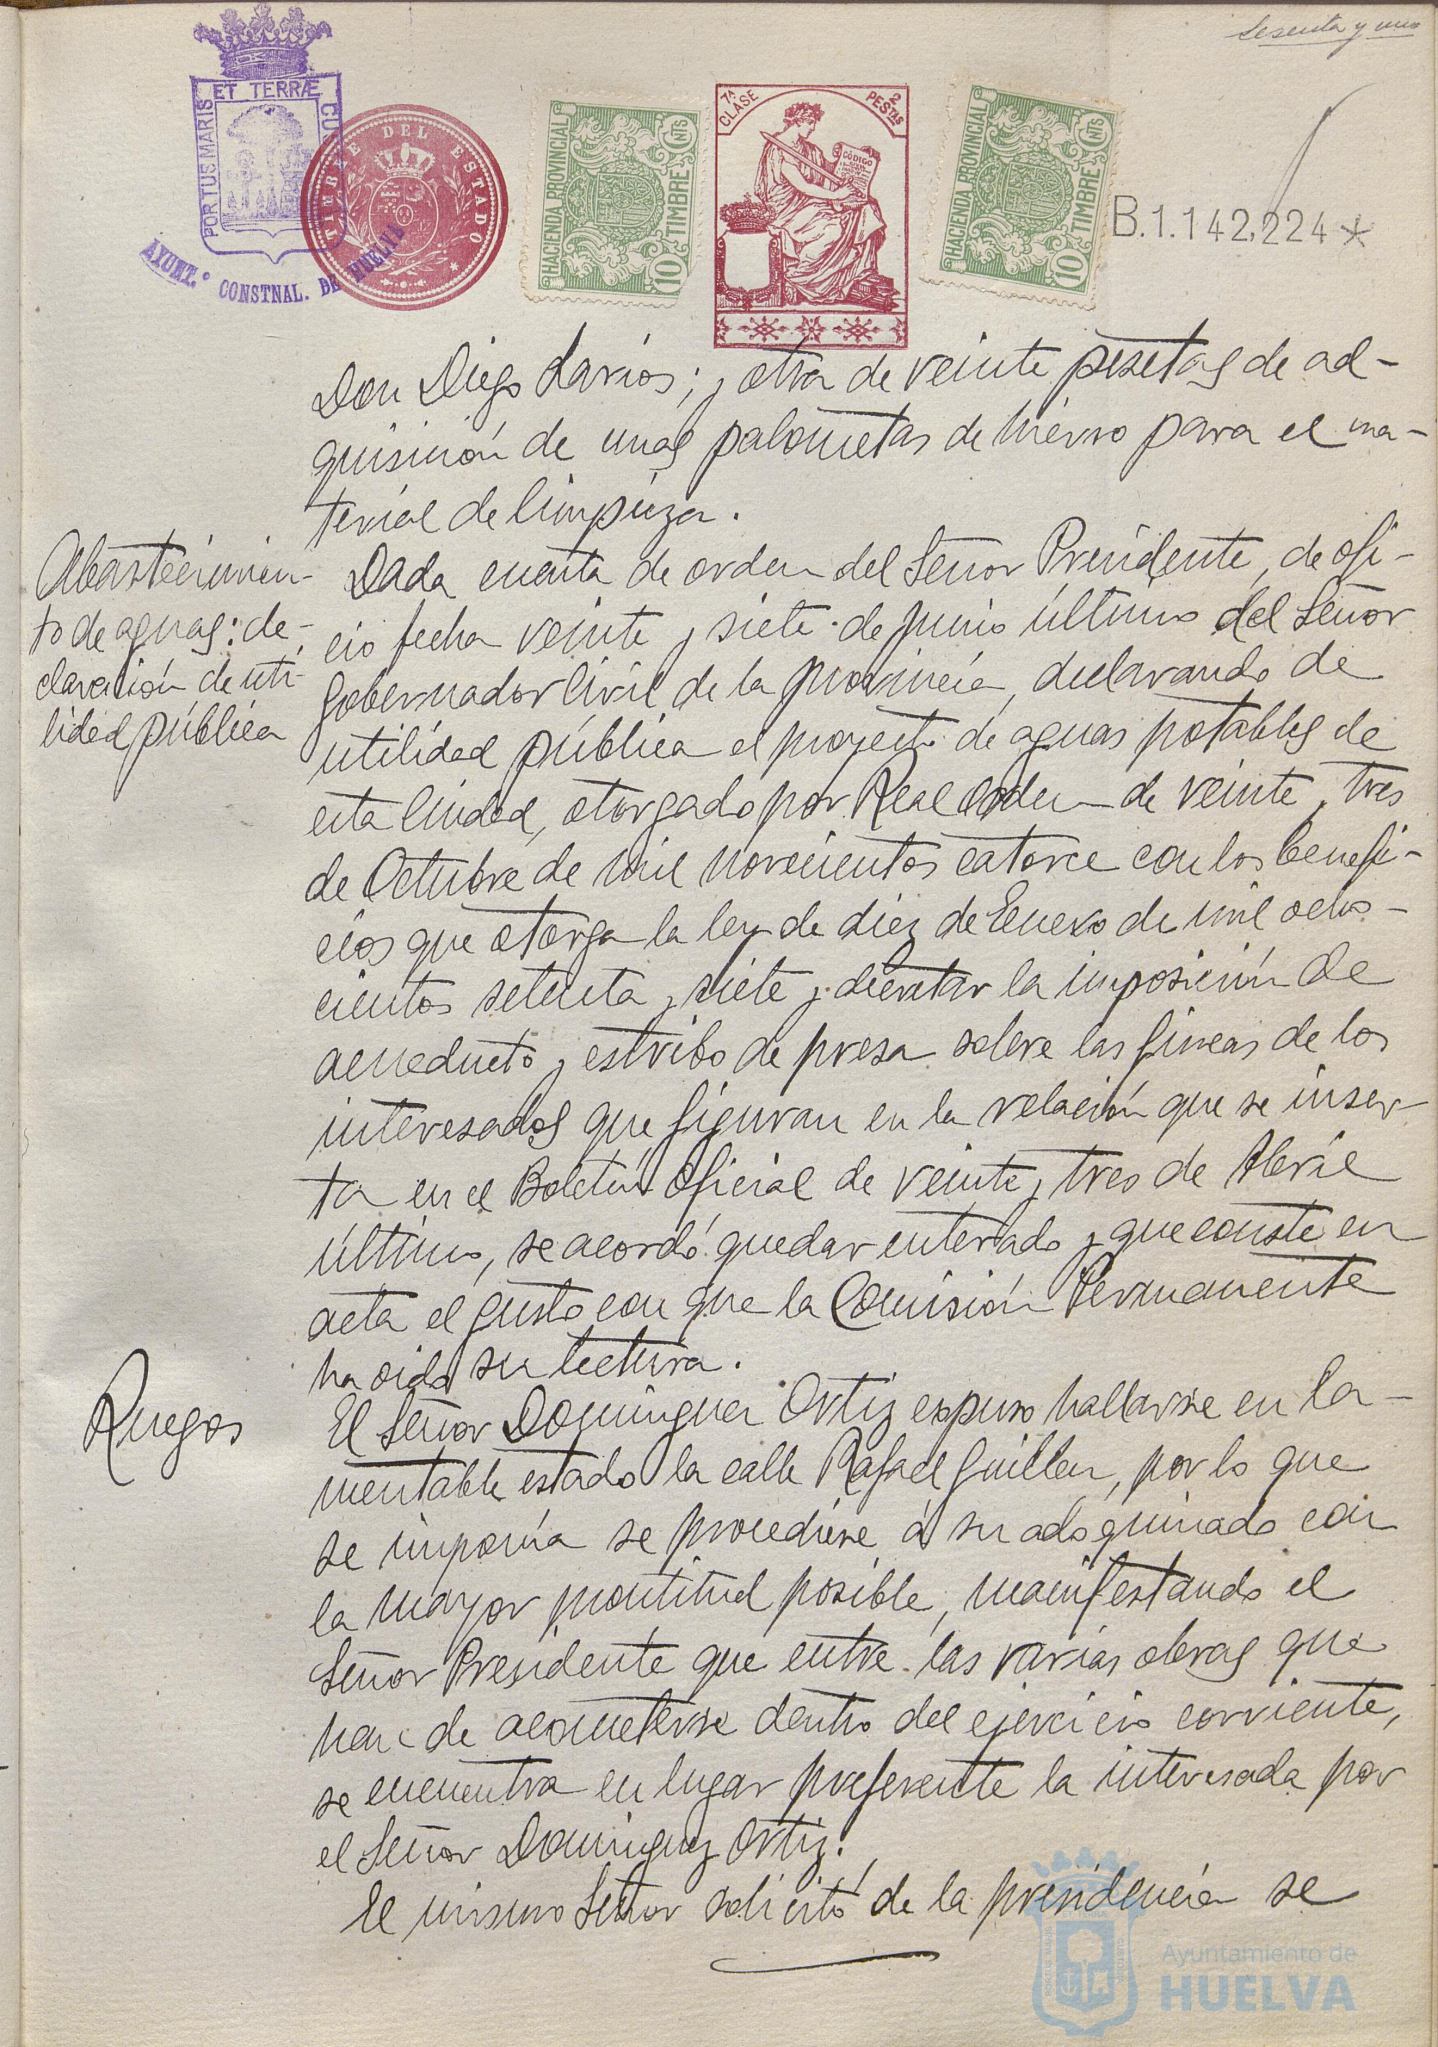 Sesenta y uno
PORTUS MARIS ET TERRÆ CUS
AYUNT.º CONSTNAL. DE HUELVA
TIMBRE DEL ESTADO
HACIENDA PROVINCIAL
10 CNTS
TIMBRE
7ª CLASE
2 PESTAS
CÓDIGO
HACIENDA PROVINCIAL
10 CNTS
TIMBRE
B.1.142,224*
Don Diego Larios; y otra de veinte pesetas de ad-
quisición de unas palometas de hierro para el ma-
terial de limpieza.
Abastecimien-
to de aguas: de-
claración de uti-
lidad pública
Dada cuenta de orden del Señor Presidente, de ofi-
cio fecha veinte y siete de junio último del Señor
Gobernador Civil de la provincia, declarando de
utilidad pública el proyecto de aguas potables de
esta Ciudad, otorgado por Real Orden de veinte y tres
de Octubre de mil novecientos catorce con los benefi-
cios que otorga la ley de diez de Enero de mil ocho-
cientos setenta y siete y decretar la imposición de
acueducto y estribo de presa sobre las fincas de los
interesados que figuran en la relación que se inser-
ta en el Boletín Oficial de veinte y tres de Abril
último, se acordó quedar enterado y que conste en
acta el gusto con que la Comisión Permanente
ha oido su lectura.
Ruegos
El Señor Dominguez Ortiz expuso hallarse en la-
mentable estado la calle Rafael Guillen, por lo que
se imponía se procediese á su adoquinado con
la mayor prontitud posible, manifestando el
Señor Presidente que entre las varias obras que
han de acometerse dentro del ejercicio corriente,
se encuentra en lugar preferente la interesada por
el Señor Dominguez Ortiz.
El mismo Señor solicitó de la presidencia se
Ayuntamiento de
HUELVA